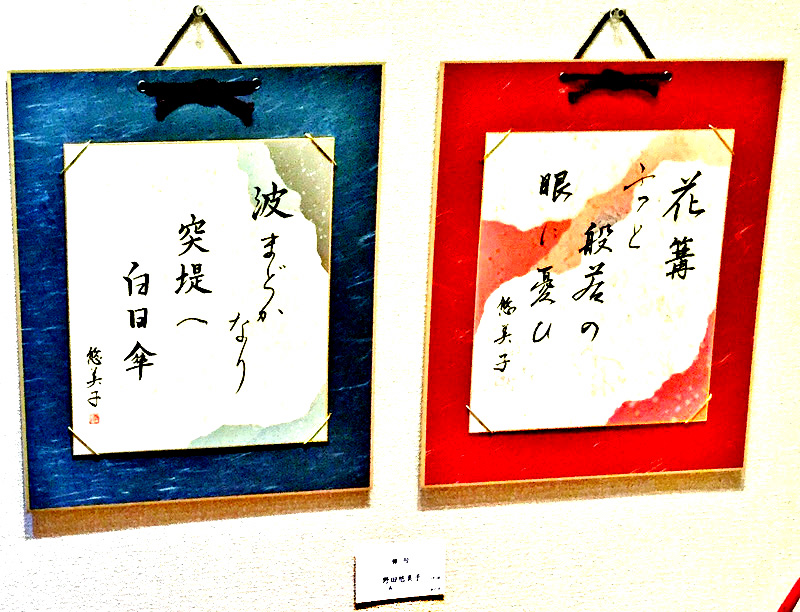 花篝
ふっと
般若の
眼に憂ひ
悠美子
波まどか
なり
突堤へ
白日傘
悠美子
俳句